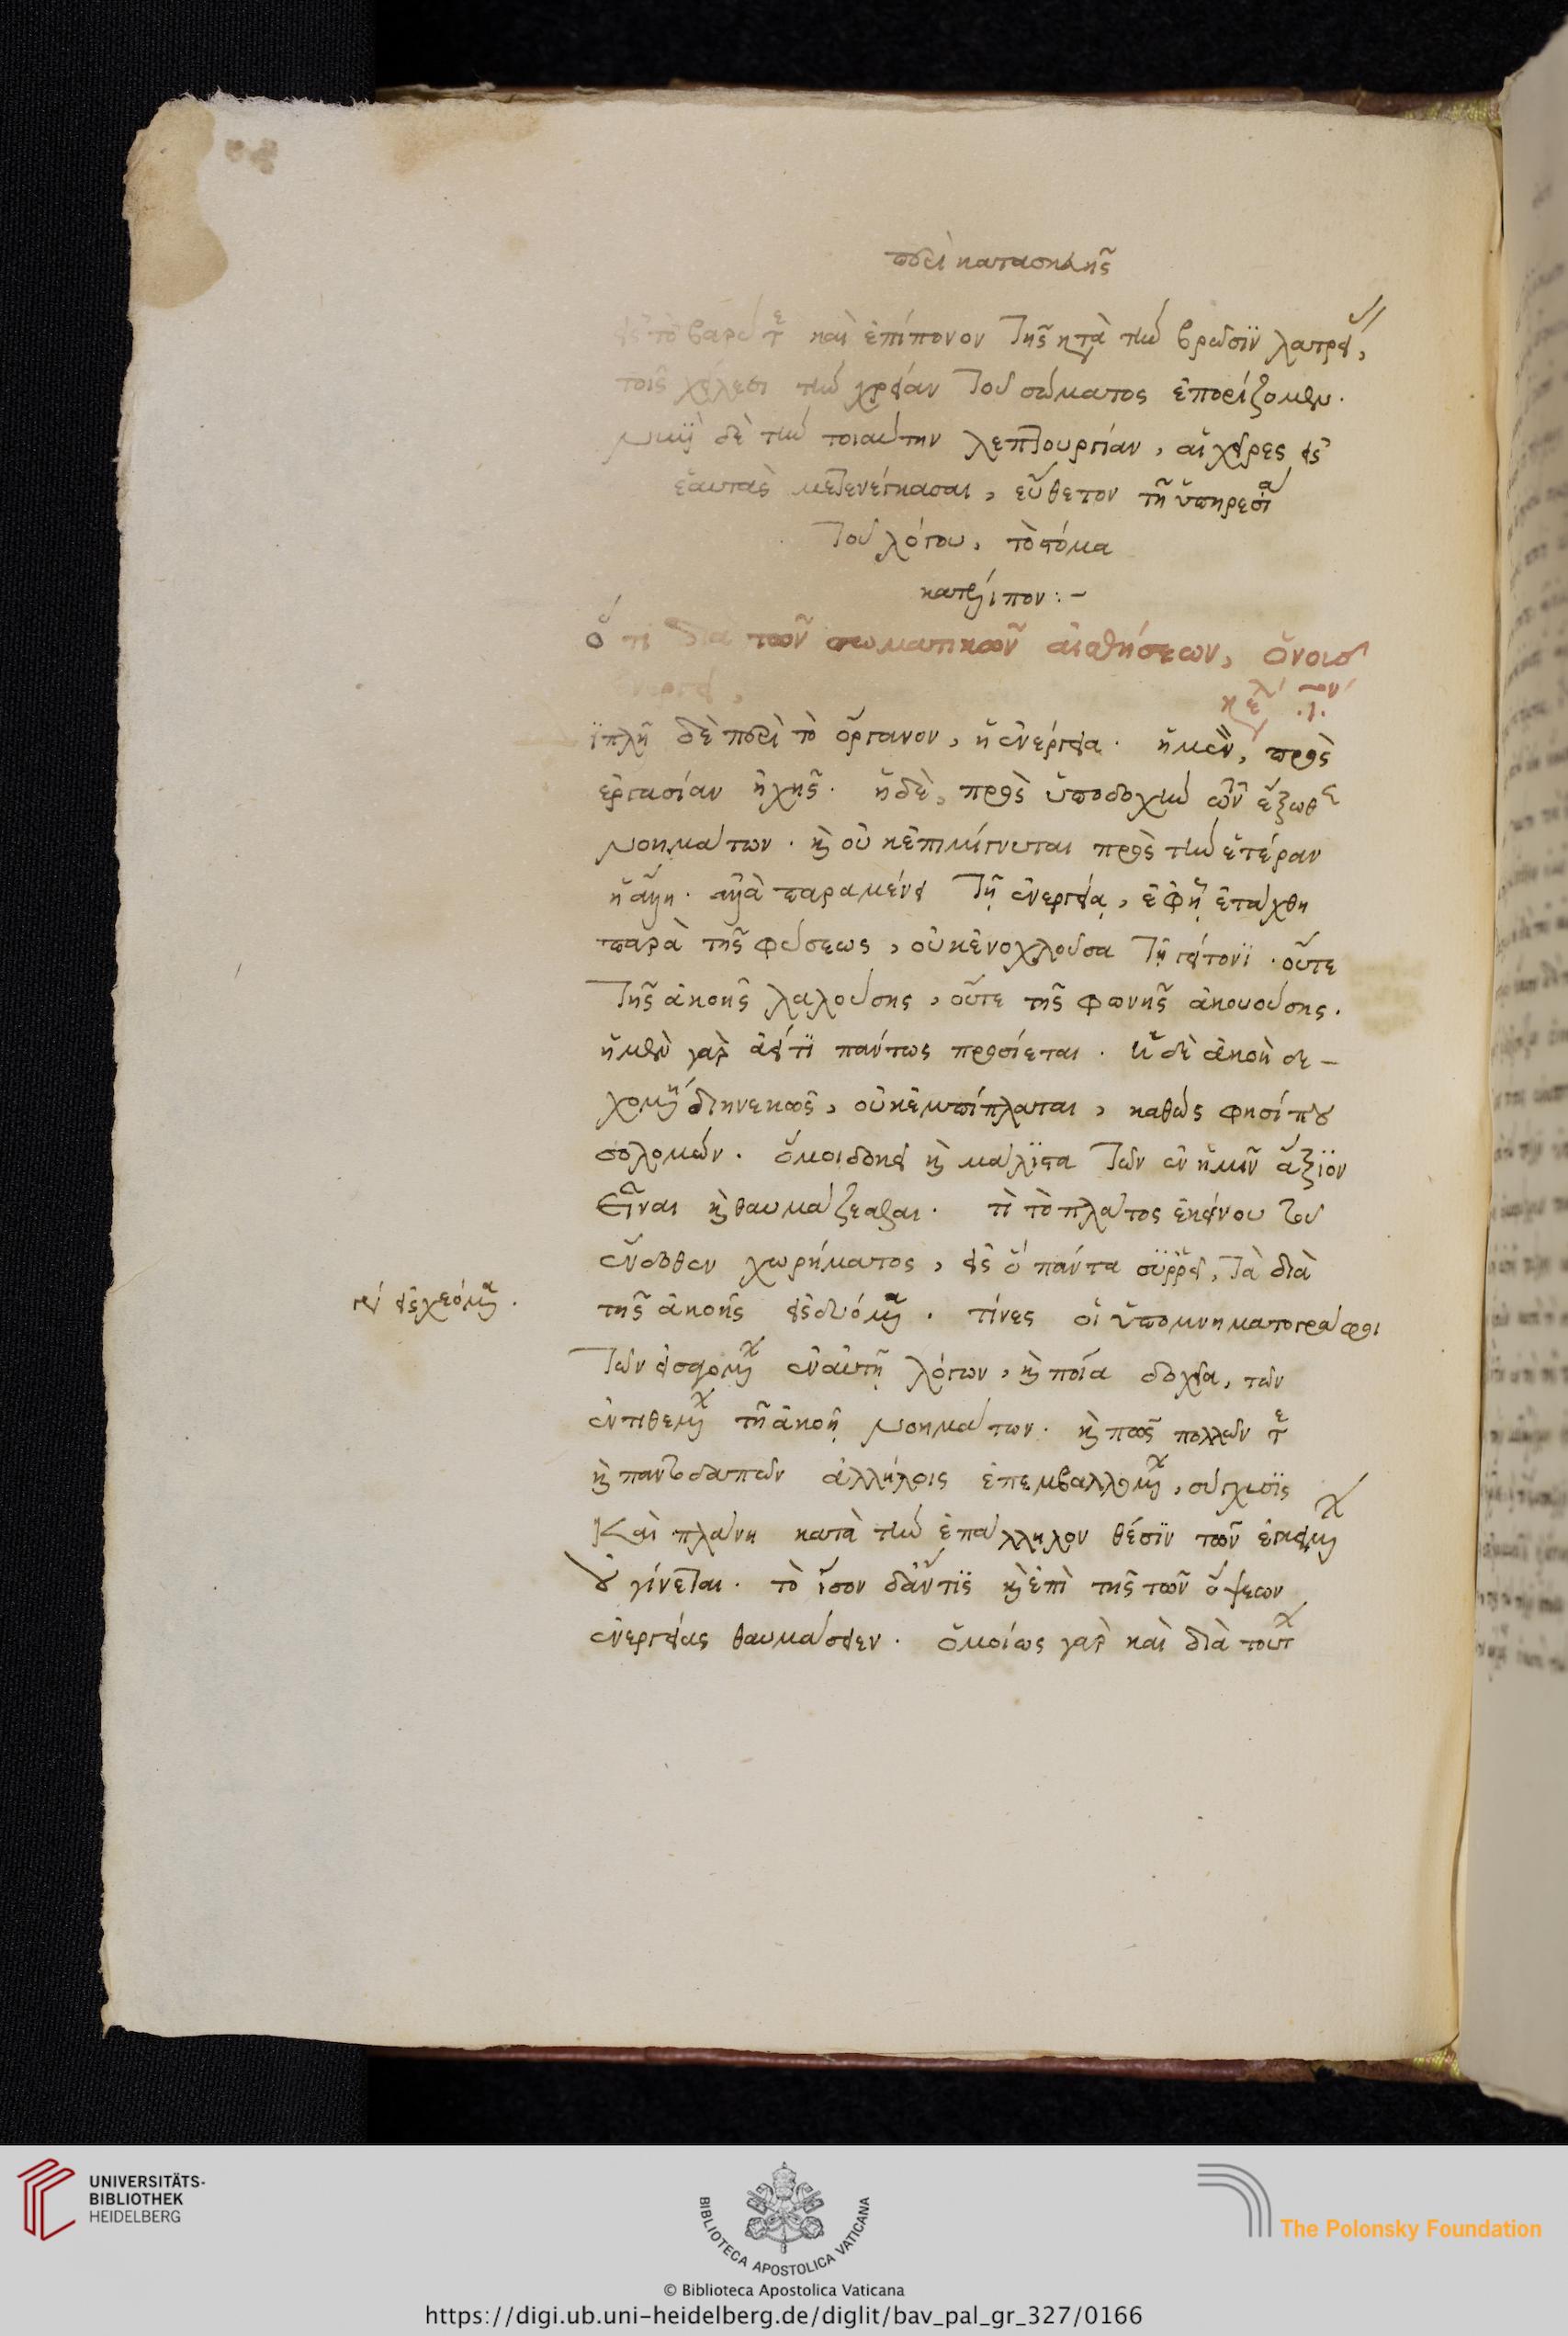 περὶ κατασκευῆς
εἰς τὸ βαρύ τε καὶ ἐπίπονον τῆς κατὰ τὴν βρῶσιν λατρείας,
τοῖς χείλεσι τὴν χρείαν τοῦ σώματος ἐπορίζομεν.
νυνὶ δὲ τὴν τοιαύτην λεπτουργίαν, αἱ χεῖρες εἰς
ἑαυτὰς μετενέγκασαι, εὔθετον τῇ ὑπηρεσίᾳ
τοῦ λόγου, τὸ στόμα
κατέλιπον:-
ὅτι διὰ τῶν σωματικῶν αἰσθήσεων, ὁ νοῦς
ἐνεργεῖ,
κεφαλ
.ι.
ιπλῆ δὲ περὶ τὸ ὄργανον, ἡ ἐνέργεια. ἡ μὲν, πρὸς
ἐργασίαν ἠχῆς. ἡ δὲ, πρὸς ὑποδοχὴν τῶν ἔξωθεν
νοημάτων. καὶ οὐκ ἐπιμίγνυται πρὸς τὴν ἑτέραν
ἡ ἄλλη. ἀλλὰ παραμένει τῇ ἐνεργείᾳ, ἐφ' ᾗ ἐτάχθη
παρὰ τῆς φύσεως, οὐκ ἐνοχλοῦσα τῇ γείτονι. οὔτε
τῆς ἀκοῆς λαλούσης, οὔτε τῆς φωνῆς ἀκουούσης.
ἡ μὲν γὰρ ἀεί τι πάντως προσίεται. ἡ δὲ ἀκοὴ δε-
χομένη διηνεκῶς, οὐκ ἐμπίπλαται, καθώς φησί που
σολομών. ὅ μοι δοκεῖ καὶ μάλιστα τῶν ἐν ἡμῖν ἄξιον
εἶναι καὶ θαυμάζεσθαι. τί τὸ πλάτος ἐκείνου τοῦ
ἔνδοθεν χωρήματος, εἰς ὃ πάντα συρρεῖ, τὰ διὰ
τῆς ἀκοῆς εἰσδυόμενα. τίνες οἱ ὑπομνηματογράφοι
γρ εἰσχεόμενα.
τῶν εἰσαγομένων ἐν αὐτῇ λόγων, καὶ ποῖα δοχεῖα, τῶν
ἐντιθεμένων τῇ ἀκοῇ νοημάτων. καὶ πῶς πολλῶν τε
καὶ παντοδαπῶν ἀλλήλοις ἐπεμβαλλομένων, σύγχυσις
καὶ πλάνη κατὰ τὴν ἐπάλληλον θέσιν τῶν ἐγκειμένων
οὐ γίνεται. τὸ ἴσον δ' ἄν τις καὶ ἐπὶ τῆς τῶν ὄψεων
ἐνεργείας θαυμάσειεν. ὁμοίως γὰρ καὶ διὰ τούτων
UNIVERSITÄTS-
BIBLIOTHEK
HEIDELBERG
BIBLIOTECA APOSTOLICA VATICANA
The Polonsky Foundation
© Biblioteca Apostolica Vaticana
https://digi.ub.uni-heidelberg.de/diglit/bav_pal_gr_327/0166